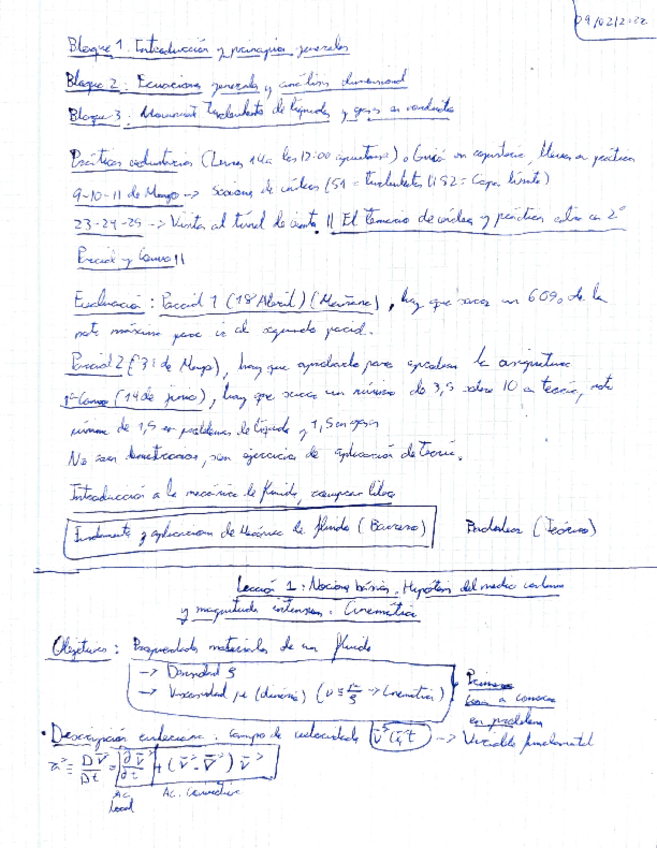 09/02/2022
Bloque 1. Introducción y principios generales
Bloque 2: Ecuaciones generales y análisis dimensional
Bloque 3: Movimiento turbulento de líquidos y gases en conductos
Prácticas voluntarias (Lunes 14 a las 17:00
9-10-11 de Marzo -> Sesiones de vídeos (S1 = Turbulentos, S2 = Capa límite)
23-24-25 -> Visita al túnel de viento || El temario de vídeos y prácticas entra en 2º
Parcial y Convo ||
Evaluación: Parcial 1 (18 Abril) (Mañana), hay que sacar un 60% de la
nota máxima para ir al segundo parcial.
Parcial 2 (31 de Mayo), hay que aprobarlo para aprobar la asignatura
1ª Convo (14 de junio), hay que sacar un mínimo de 3,5 sobre 10 en teoría, nota
mínima de 1,5 en problemas de líquido y 1,5 en gases
No son demostraciones, son ejercicios de aplicación de teoría.
Introducción a la mecánica de fluidos, comprar libro
Fundamentos y aplicaciones de Mecánica de fluidos (Barrero) (Teórico)
Lección 1: Nociones básicas. Hipótesis del medio continuo
y magnitudes intensivas. Cinemática
Objetivos: Propiedades materiales de un fluido
-> Densidad ρ
-> Viscosidad μ (dinámica) (ν ≡ μ/ρ -> Cinemática)
en problemas
• Descripción euleriana: campo de velocidades v⃗(r⃗,t) -> Variable fundamental
a⃗ ≡ Dv⃗/Dt = ∂v⃗/∂t + (v⃗·∇)v⃗
Ac. local
Ac. Convectiva